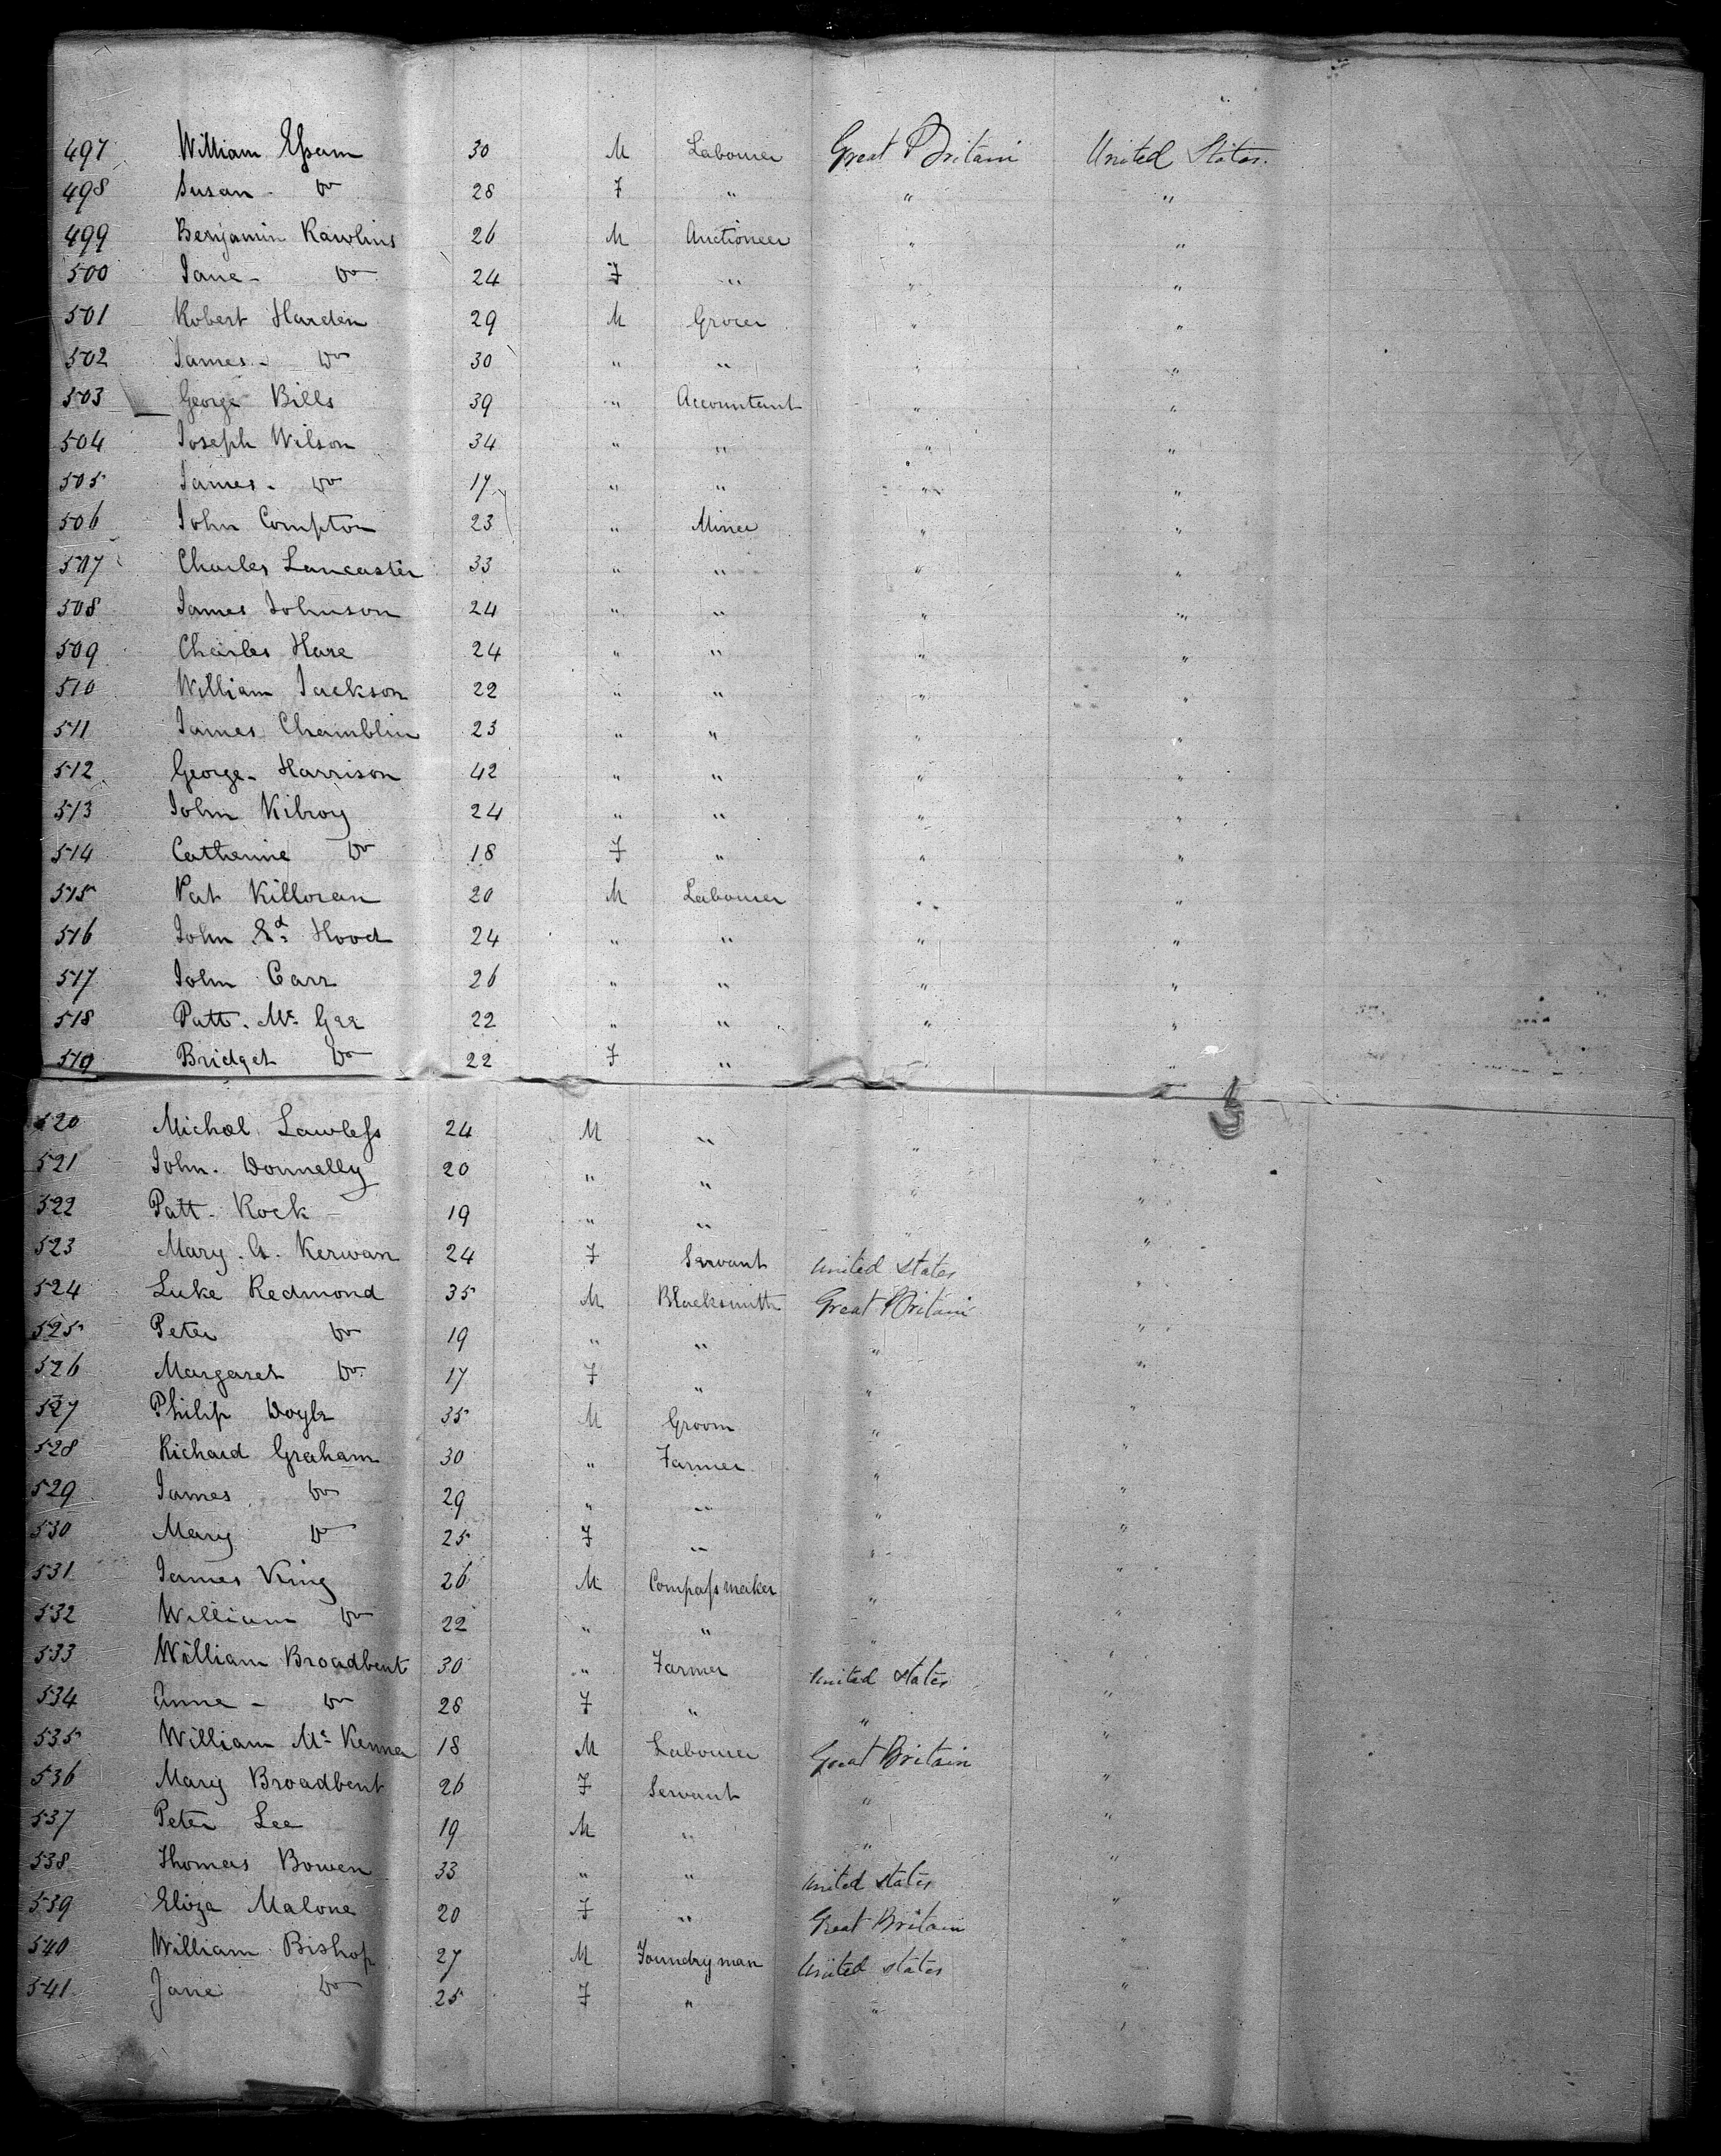 497 William Essam 30 M Labourer Great Britain United States.
498 Susan - Do 28 F " " "
499 Benjamin Rawlins 26 M Auctioneer " "
500 Jane - Do 24 F " " "
501 Robert Harden 29 M Grocer " "
502 James - Do 30 " " " "
503 George Bills 39 " Accountant " "
504 Joseph Wilson 34 " " " "
505 James - Do 17 " " " "
506 John Compton 23 " Miner " "
507 Charles Lancaster 33 " " " "
508 James Johnson 24 " " " "
509 Charles Hare 24 " " " "
510 William Jackson 22 " " " "
511 James Chamblin 23 " " " "
512 George - Harrison 42 " " " "
513 John Kilroy 24 " " " "
514 Catherine Do 18 F " " "
515 Pat Killoran 20 M Labourer " "
516 John Ed. Hood 24 " " " "
517 John Carr 26 " " " "
518 Patt. Mc Gee 22 " " " "
519 Bridget Do 22 F " " "
520 Michael Lawless 24 M " " "
521 John. Donnelly 20 " " " "
522 Patt - Rock 19 " " " "
523 Mary. A. Kerwan 24 F Servant United States "
524 Luke Redmond 35 M Blacksmith Great Britain "
525 Peter Do 19 " " " "
526 Margaret Do 17 F " " "
527 Philip Doyle 35 M Groom " "
528 Richard Graham 30 " Farmer " "
529 James Do 29 " " " "
530 Mary Do 25 F " " "
531 James King 26 M Compass maker " "
532 William Do 22 " " " "
533 William Broadbent 30 " Farmer United States "
534 Anne - Do 28 F " " "
535 William Mc Kenna 18 M Labourer Great Britain "
536 Mary Broadbent 26 F Servant " "
537 Peter Lee 19 M " " "
538 Thomas Bowen 33 " " United States "
539 Eliza Malone 20 F " Great Britain "
540 William Bishop 27 M Foundryman United States "
541 Jane Do 25 F " " "